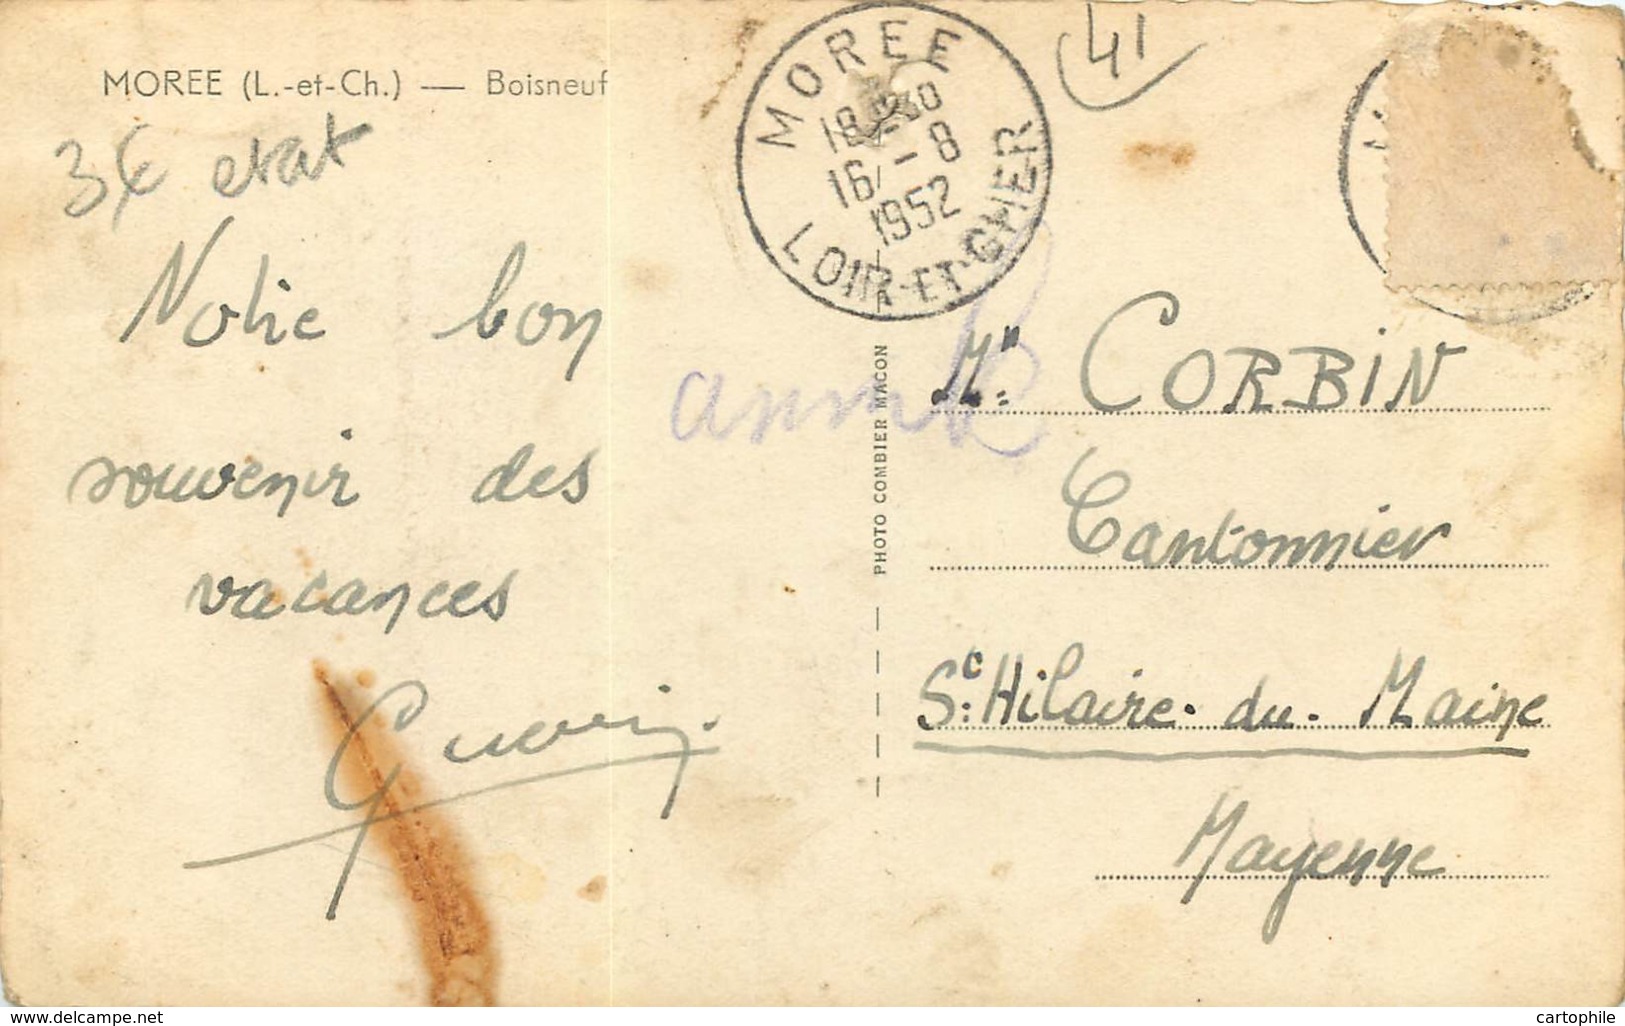 MOREE (L.-et-Ch.) — Boisneuf
3€ etat
Notre bon
souvenir des
vacances
Guérin
MOREE
18 30
16 - 8
1952
LOIR-ET-CHER
41
PHOTO COMBIER MACON
Mr. CORBIN
Cantonnier
St. Hilaire. du. Maine
Mayenne
www.delcampe.net
cartophile